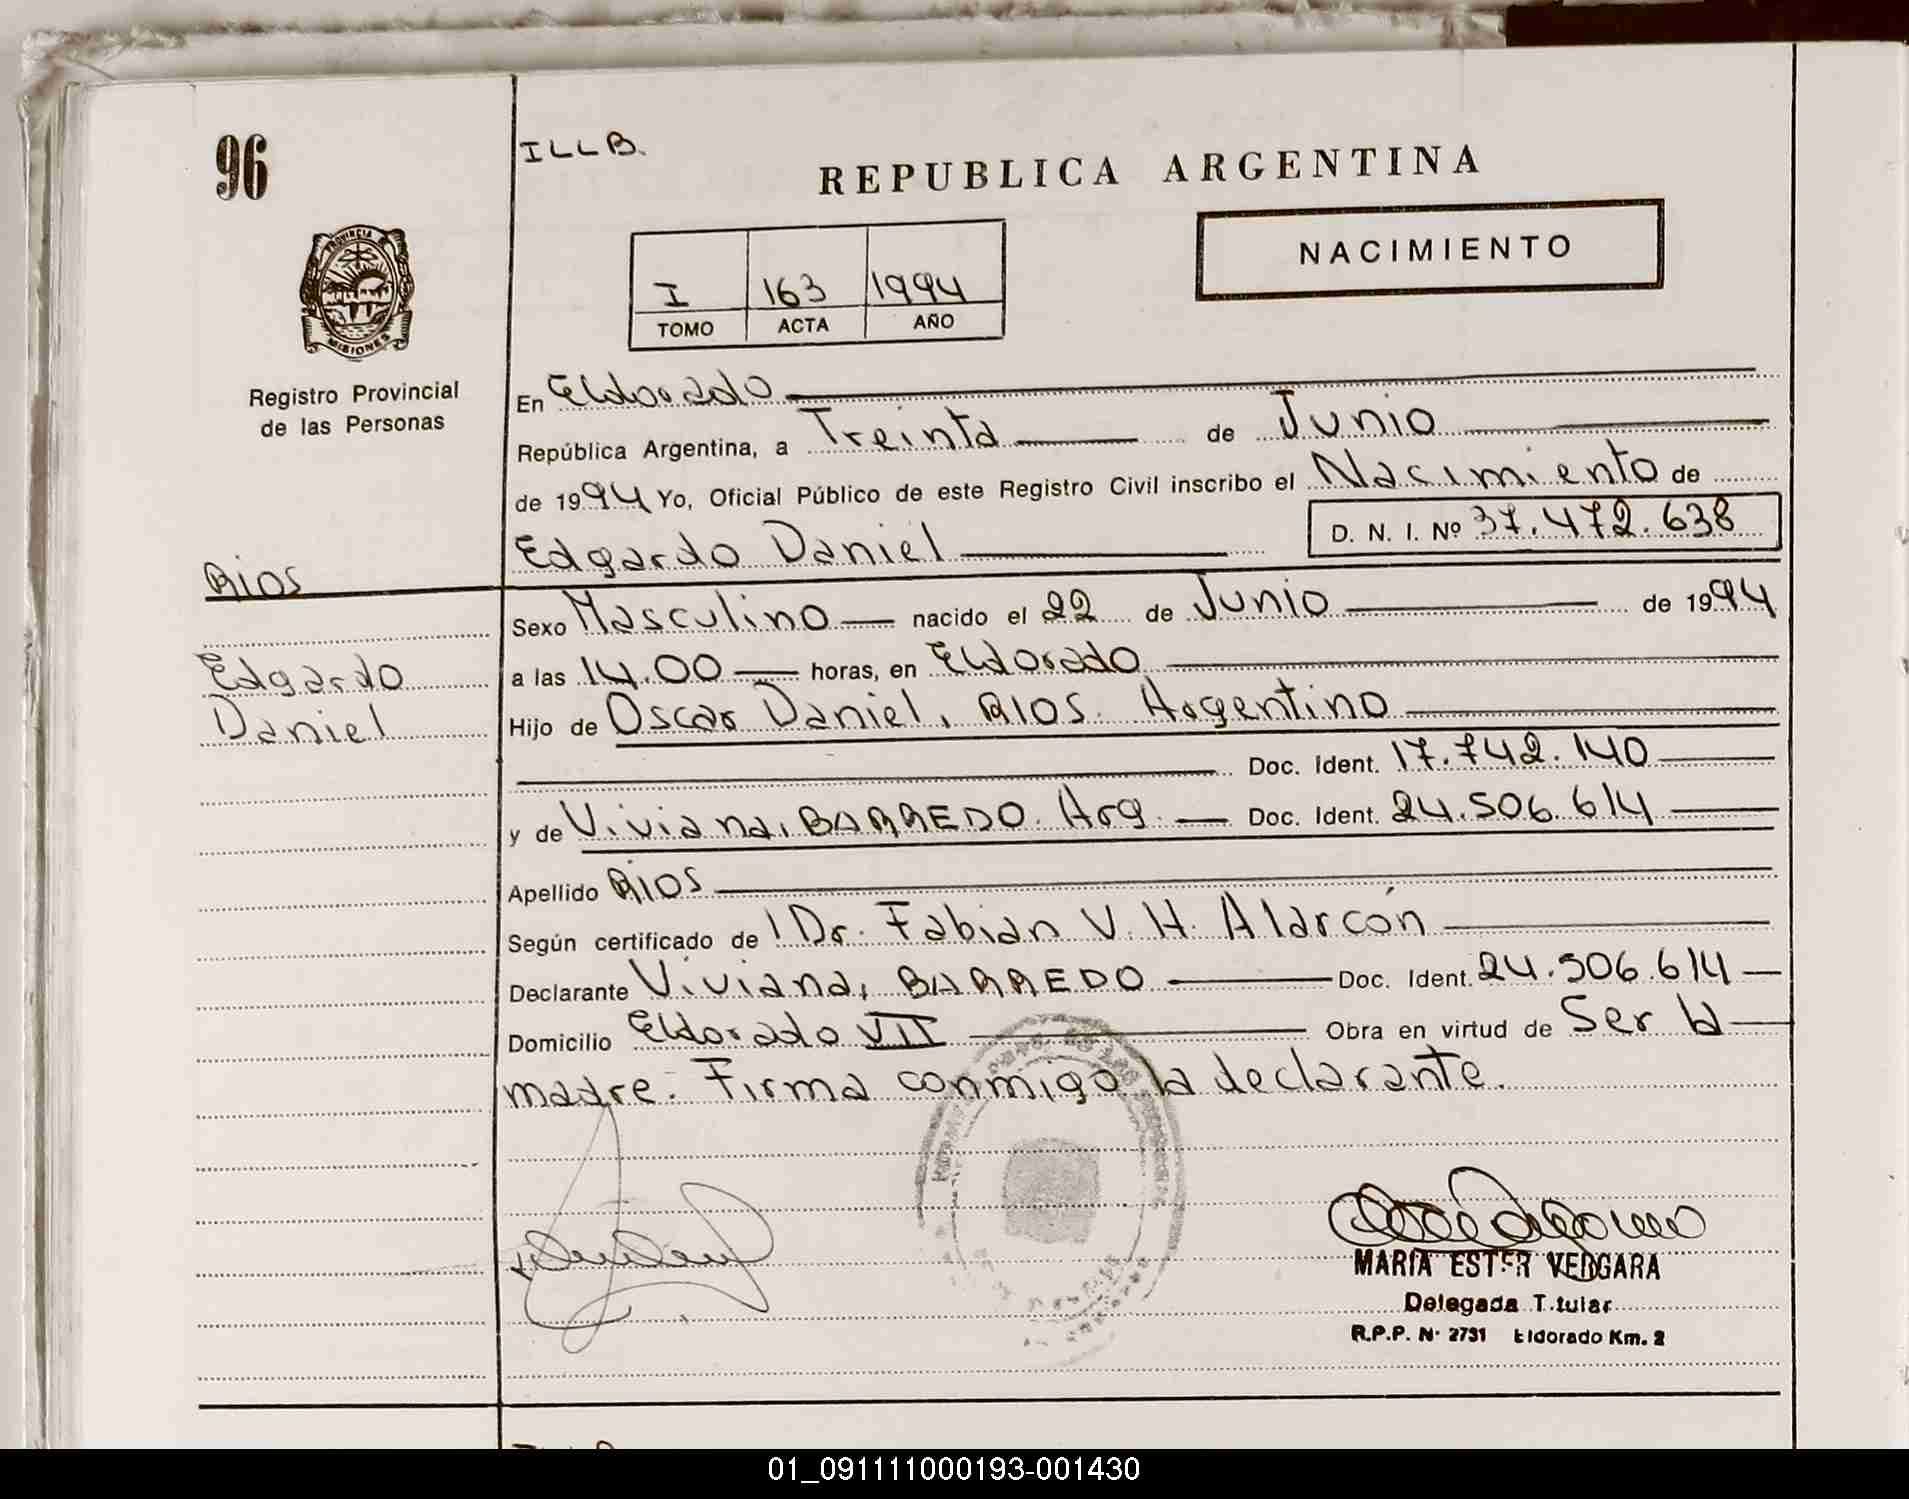 96
ILLB.
REPUBLICA ARGENTINA
NACIMIENTO
I 163 1994
TOMO ACTA AÑO
PROVINCIA DE
MISIONES
Registro Provincial
de las Personas
En Eldorado
República Argentina, a Treinta de Junio
de 1994 Yo, Oficial Público de este Registro Civil inscribo el Nacimiento de
Edgardo Daniel D. N. I. Nº 37.472.638
RIOS
Edgardo
Daniel
Sexo Masculino nacido el 22 de Junio de 1994
a las 14.00 horas, en Eldorado
Hijo de Oscar Daniel, RIOS. Argentino
Doc. Ident. 17.742.140
y de Viviana, BARREDO. Arg. Doc. Ident. 24.506.614
Apellido RIOS
Según certificado de Dr. Fabian V. H. Alarcón
Declarante Viviana, BARREDO Doc. Ident. 24.506.614
Domicilio Eldorado VII Obra en virtud de Ser la
madre. Firma conmigo la declarante.
MARIA ESTER VERGARA
Delegada Titular
R.P.P. Nº 2731 Eldorado Km. 2
01_091111000193-001430